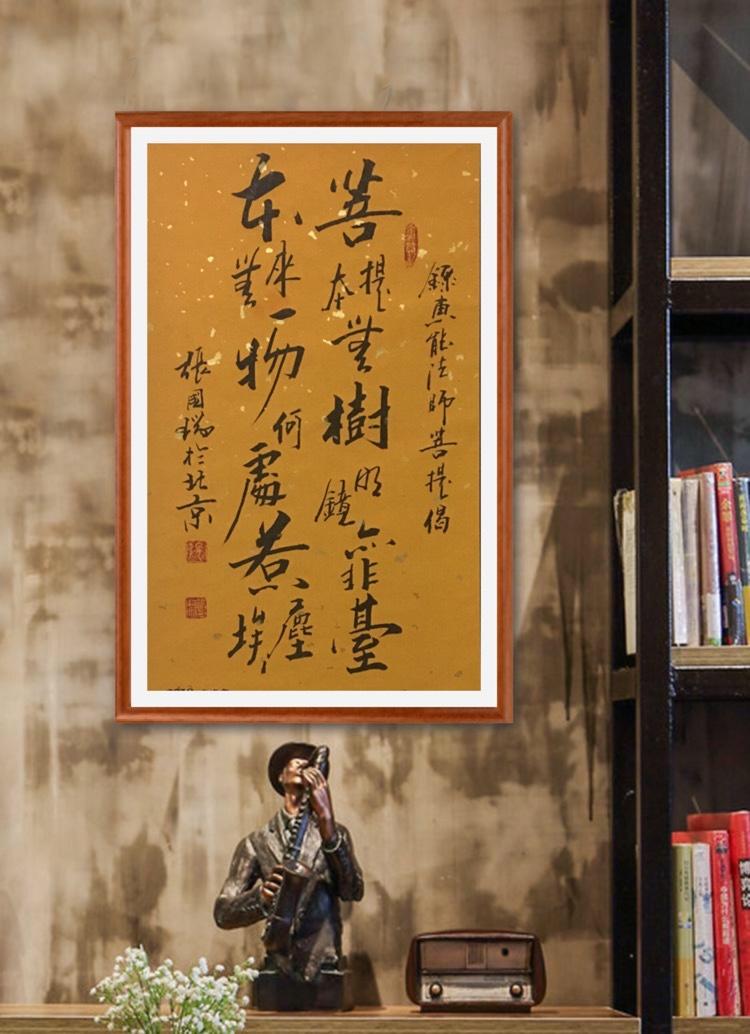 錄惠能法師菩提偈
菩提本無樹明鏡亦非臺
本來無一物何處惹塵埃
張國瑞於北京
博弈论